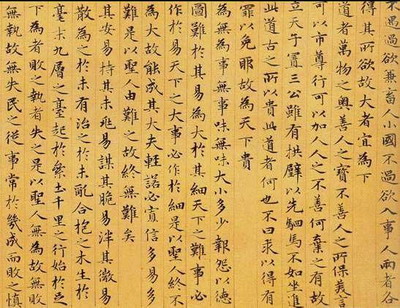 不過欲兼畜人小國不過欲入事人兩者各
得其所欲故大者宜為下
道者萬物之奧善人之寶不善人之所保美言
可以市尊行可以加人人之不善何棄之有故
立天子置三公雖有拱璧以先駟馬不如坐進
此道古之所以貴此道者何也不曰求以得有
罪以免耶故為天下貴
為無為事無事味無味大小多少報怨以德
圖難於其易為大於其細天下之難事必
作於易天下之大事必作於細是以聖人終不
為大故能成其大夫輕諾必寡信多易多
難是以聖人由難之故終無難矣
其安易持其未兆易謀其脆易泮其微易
散為之於未有治之於未亂合抱之木生於
毫末九層之臺起於絫土千里之行始於足
下為者敗之執者失之是以聖人無為故無敗
無執故無失民之從事常於幾成而敗之慎